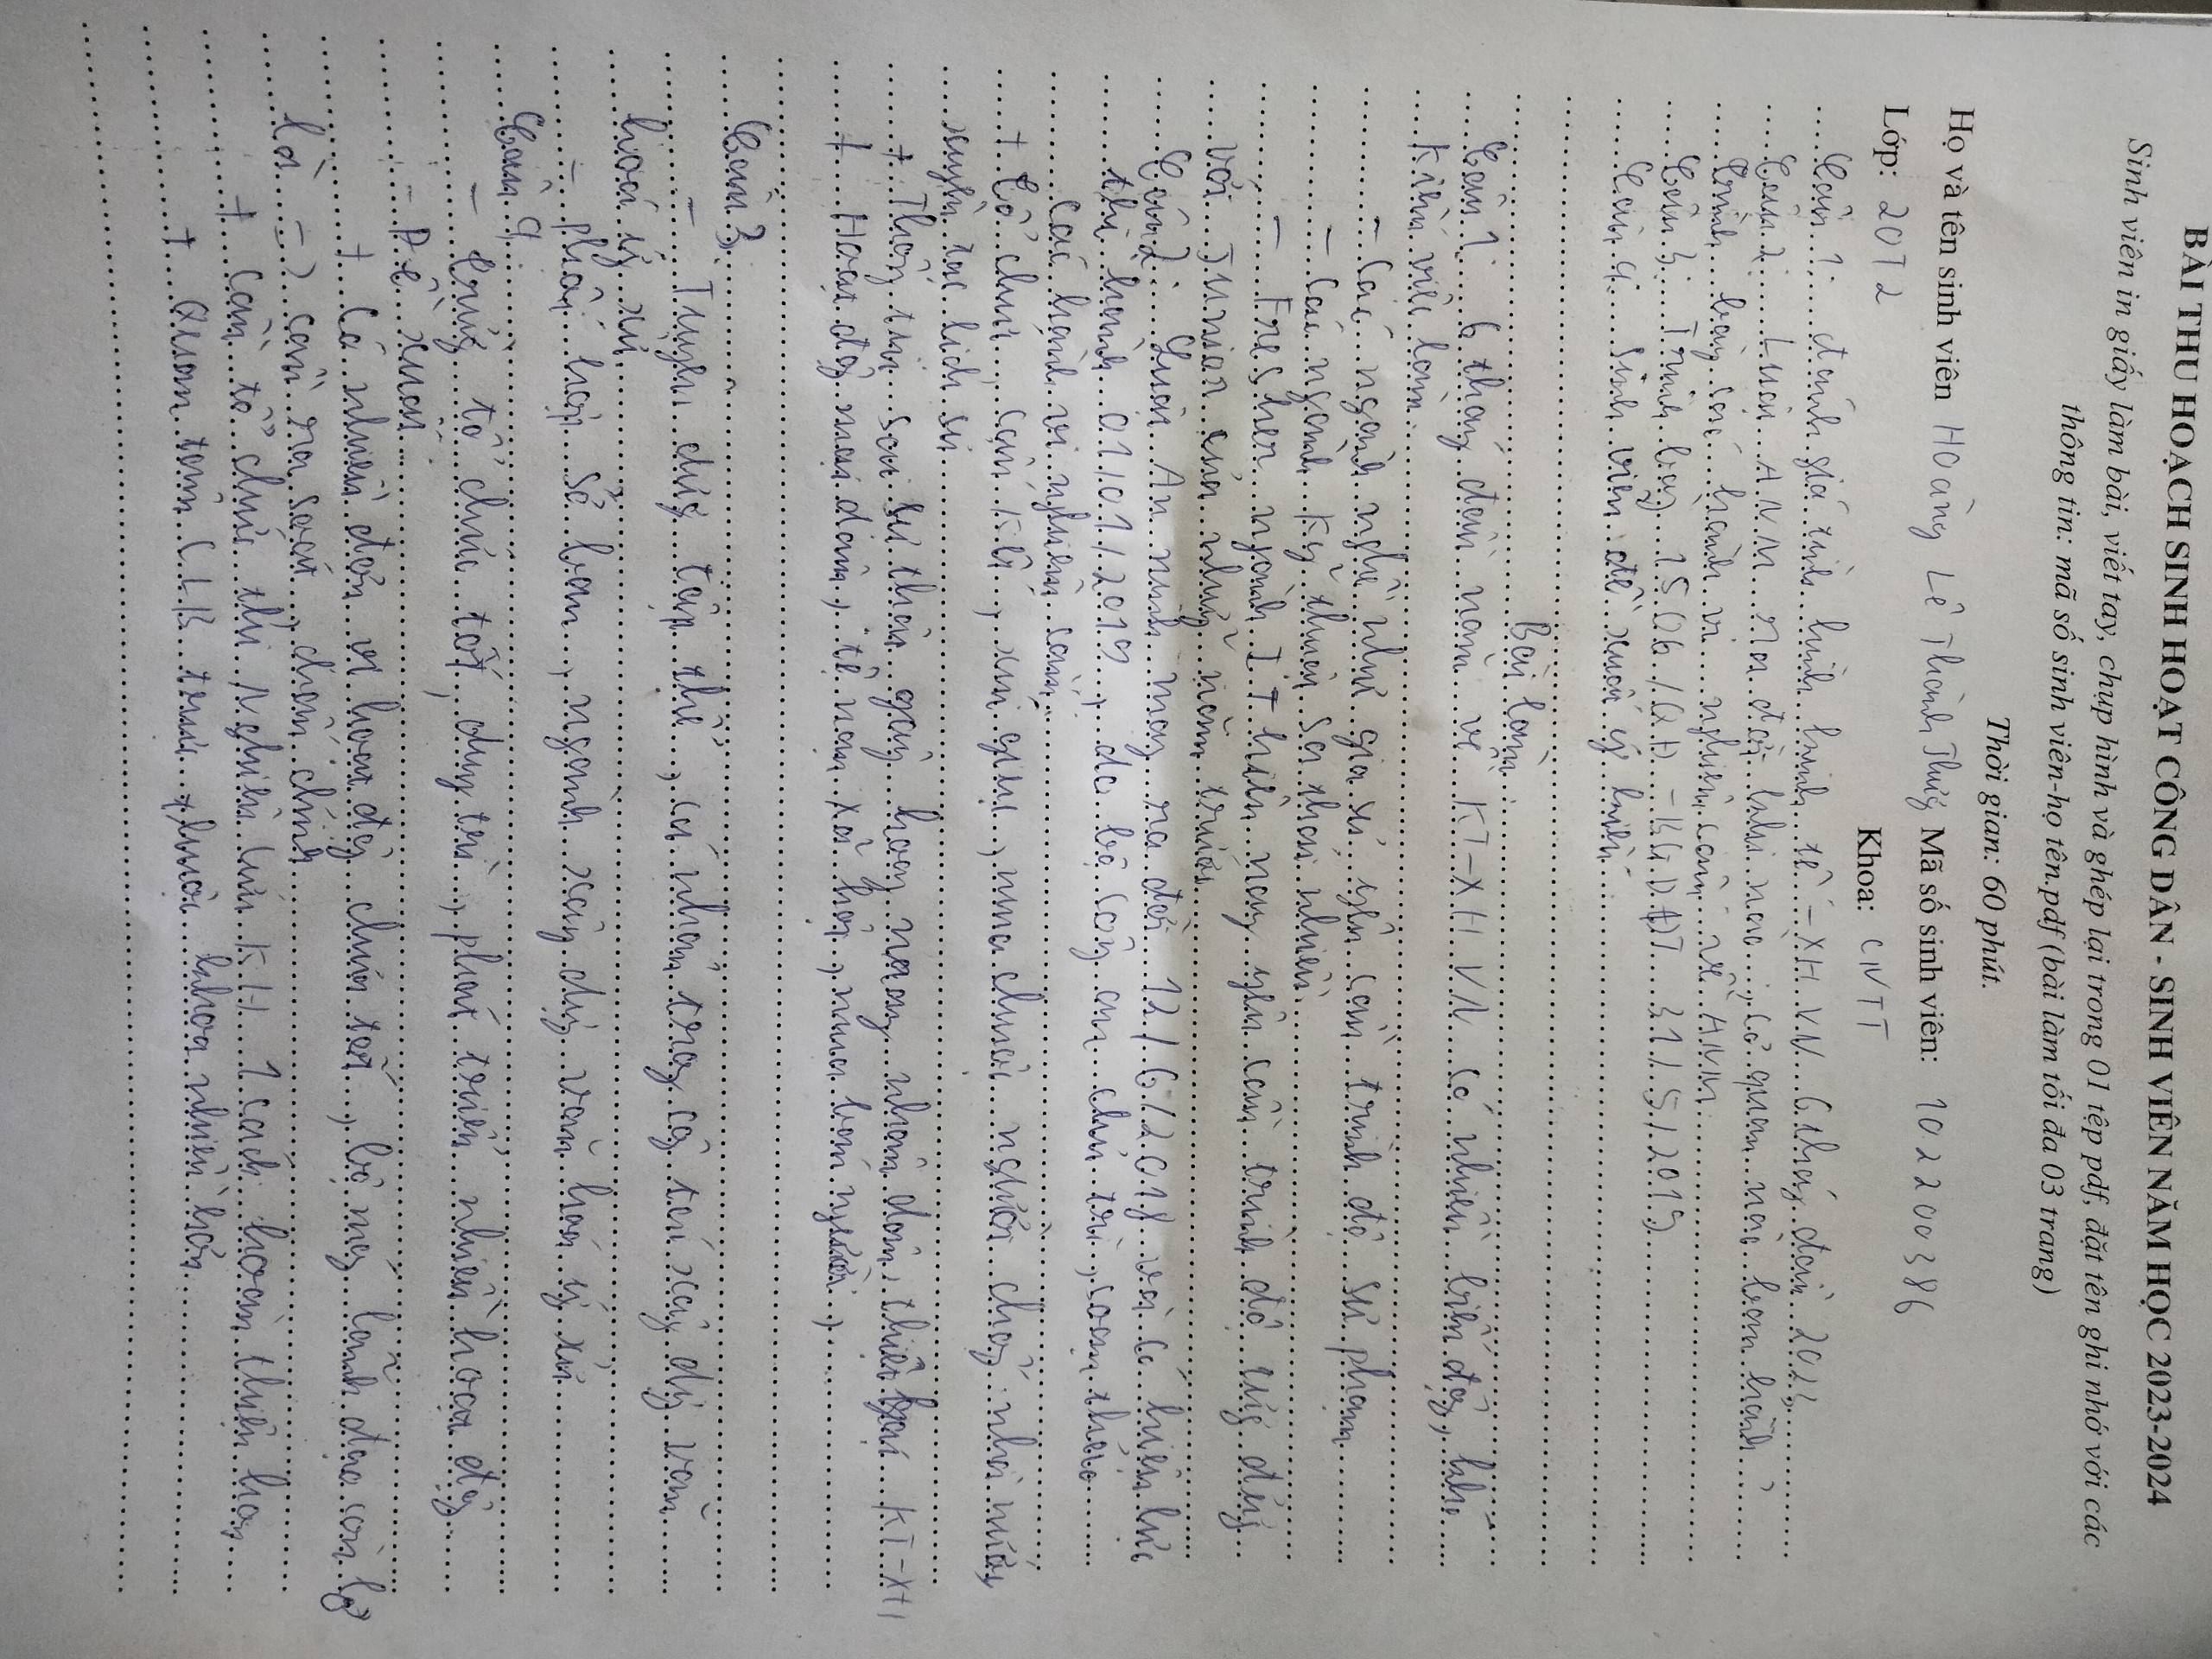 BÀI THU HOẠCH SINH HOẠT CÔNG DÂN - SINH VIÊN NĂM HỌC 2023-2024
Sinh viên in giấy làm bài, viết tay, chụp hình và ghép lại trong 01 tệp pdf, đặt tên ghi nhớ với các
thông tin: mã số sinh viên-họ tên.pdf (bài làm tối đa 03 trang)
Thời gian: 60 phút.
Họ và tên sinh viên Hoàng Lê Thành Mã số sinh viên: 102200386
Lớp: 20T2 Khoa: CNTT
Câu 1: đánh giá tình hình kinh tế - XH VN 6 tháng đầu 2023
Câu 2: Luật ANM ra đời khi nào, cơ quan nào ban hành
Trình bày các hành vi nghiêm cấm về ANM
Câu 3: Trình bày 1506/QĐ-BGDĐT 31/5/2019
Câu 4: Sinh viên đề xuất ý kiến
Bài làm
Câu 1: 6 tháng đầu năm về KT-XH VN có nhiều biến động, khó
kiếm việc làm
- Các ngành nghề như gia sư yêu cầu trình độ sư phạm
- Các ngành kỹ thuật sa thải nhiều
- Fresher ngành IT hiện nay yêu cầu trình độ ứng đúng
với Junior của những năm trước
Câu 2: Luật An ninh mạng ra đời 12/6/2018 và có hiệu lực
thi hành 01/01/2019, do bộ công an chủ trì, soạn thảo
Các hành vi nghiêm cấm:
+ Tổ chức, cấu kết, xúi giục, mua chuộc người chống nhà nước,
xuyên tạc lịch sử
+ Thông tin sai sự thật gây hoang mang nhân dân, thiệt hại KT-XH
+ Hoạt động mại dâm, tệ nạn xã hội, mua bán người,
Câu 3
- Tuyên dương tập thể, cá nhân trong công tác xây dựng văn
hoá ứng xử
- phối hợp sở ban, ngành xây dựng văn hoá ứng xử
Câu 4:
- Trường tổ chức tốt, duy trì, phát triển nhiều hoạt động
- Đề xuất:
+ Có nhiều đơn vị hoạt động chưa tốt, bộ máy lãnh đạo còn lơ
là -> cần rà soát, chấn chỉnh
+ Cần tổ chức thi Nghiên cứu KH 1 cách hoàn thiện hơn
+ Quan tâm CLB trực thuộc khoa nhiều hơn